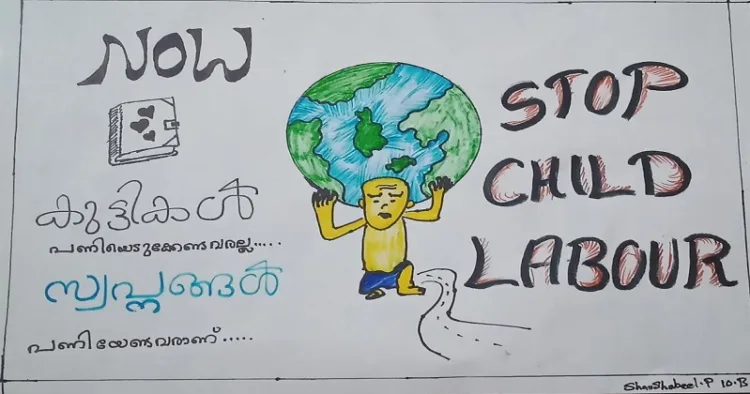 NOW
കുട്ടികൾ
പണിയെടുക്കേണ്ടവരല്ല.....
സ്വപ്നങ്ങൾ
പണിയേണ്ടവരാണ്.....
STOP
CHILD
LABOUR
ShanShabeel.P 10.B